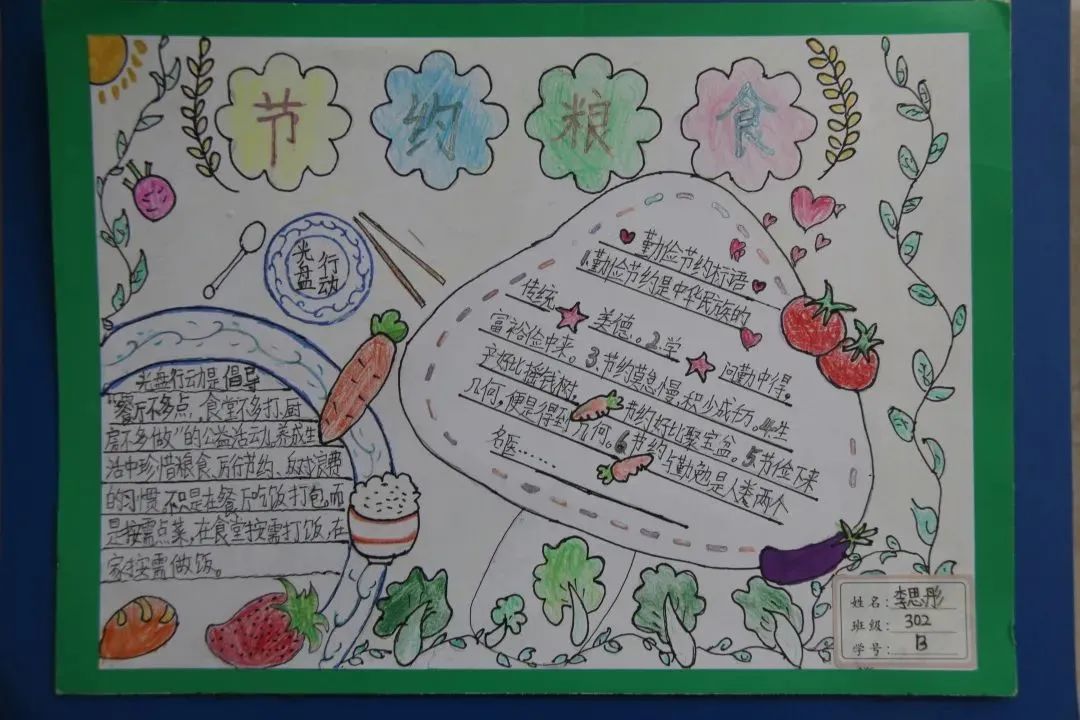 节约粮食
光盘
行动
光盘行动是倡导
"餐厅不多点、食堂不多打、厨
房不多做"的公益活动。养成生
活中珍惜粮食、厉行节约、反对浪费
的习惯,不只是在餐厅吃饭打包,而
是按需点菜,在食堂按需打饭,在
家按需做饭。
勤俭节约标语
1.勤俭节约是中华民族的
传统美德。2.学问勤中得。
富裕俭中来。3.节约莫怠慢,积少成万。4.生
产好比摇钱树,节约好比聚宝盆。5.节俭下来
几何,便是得到几何。6.节约与勤勉是人类两个
名医……
姓名:李思彤
班级:302
学号:13